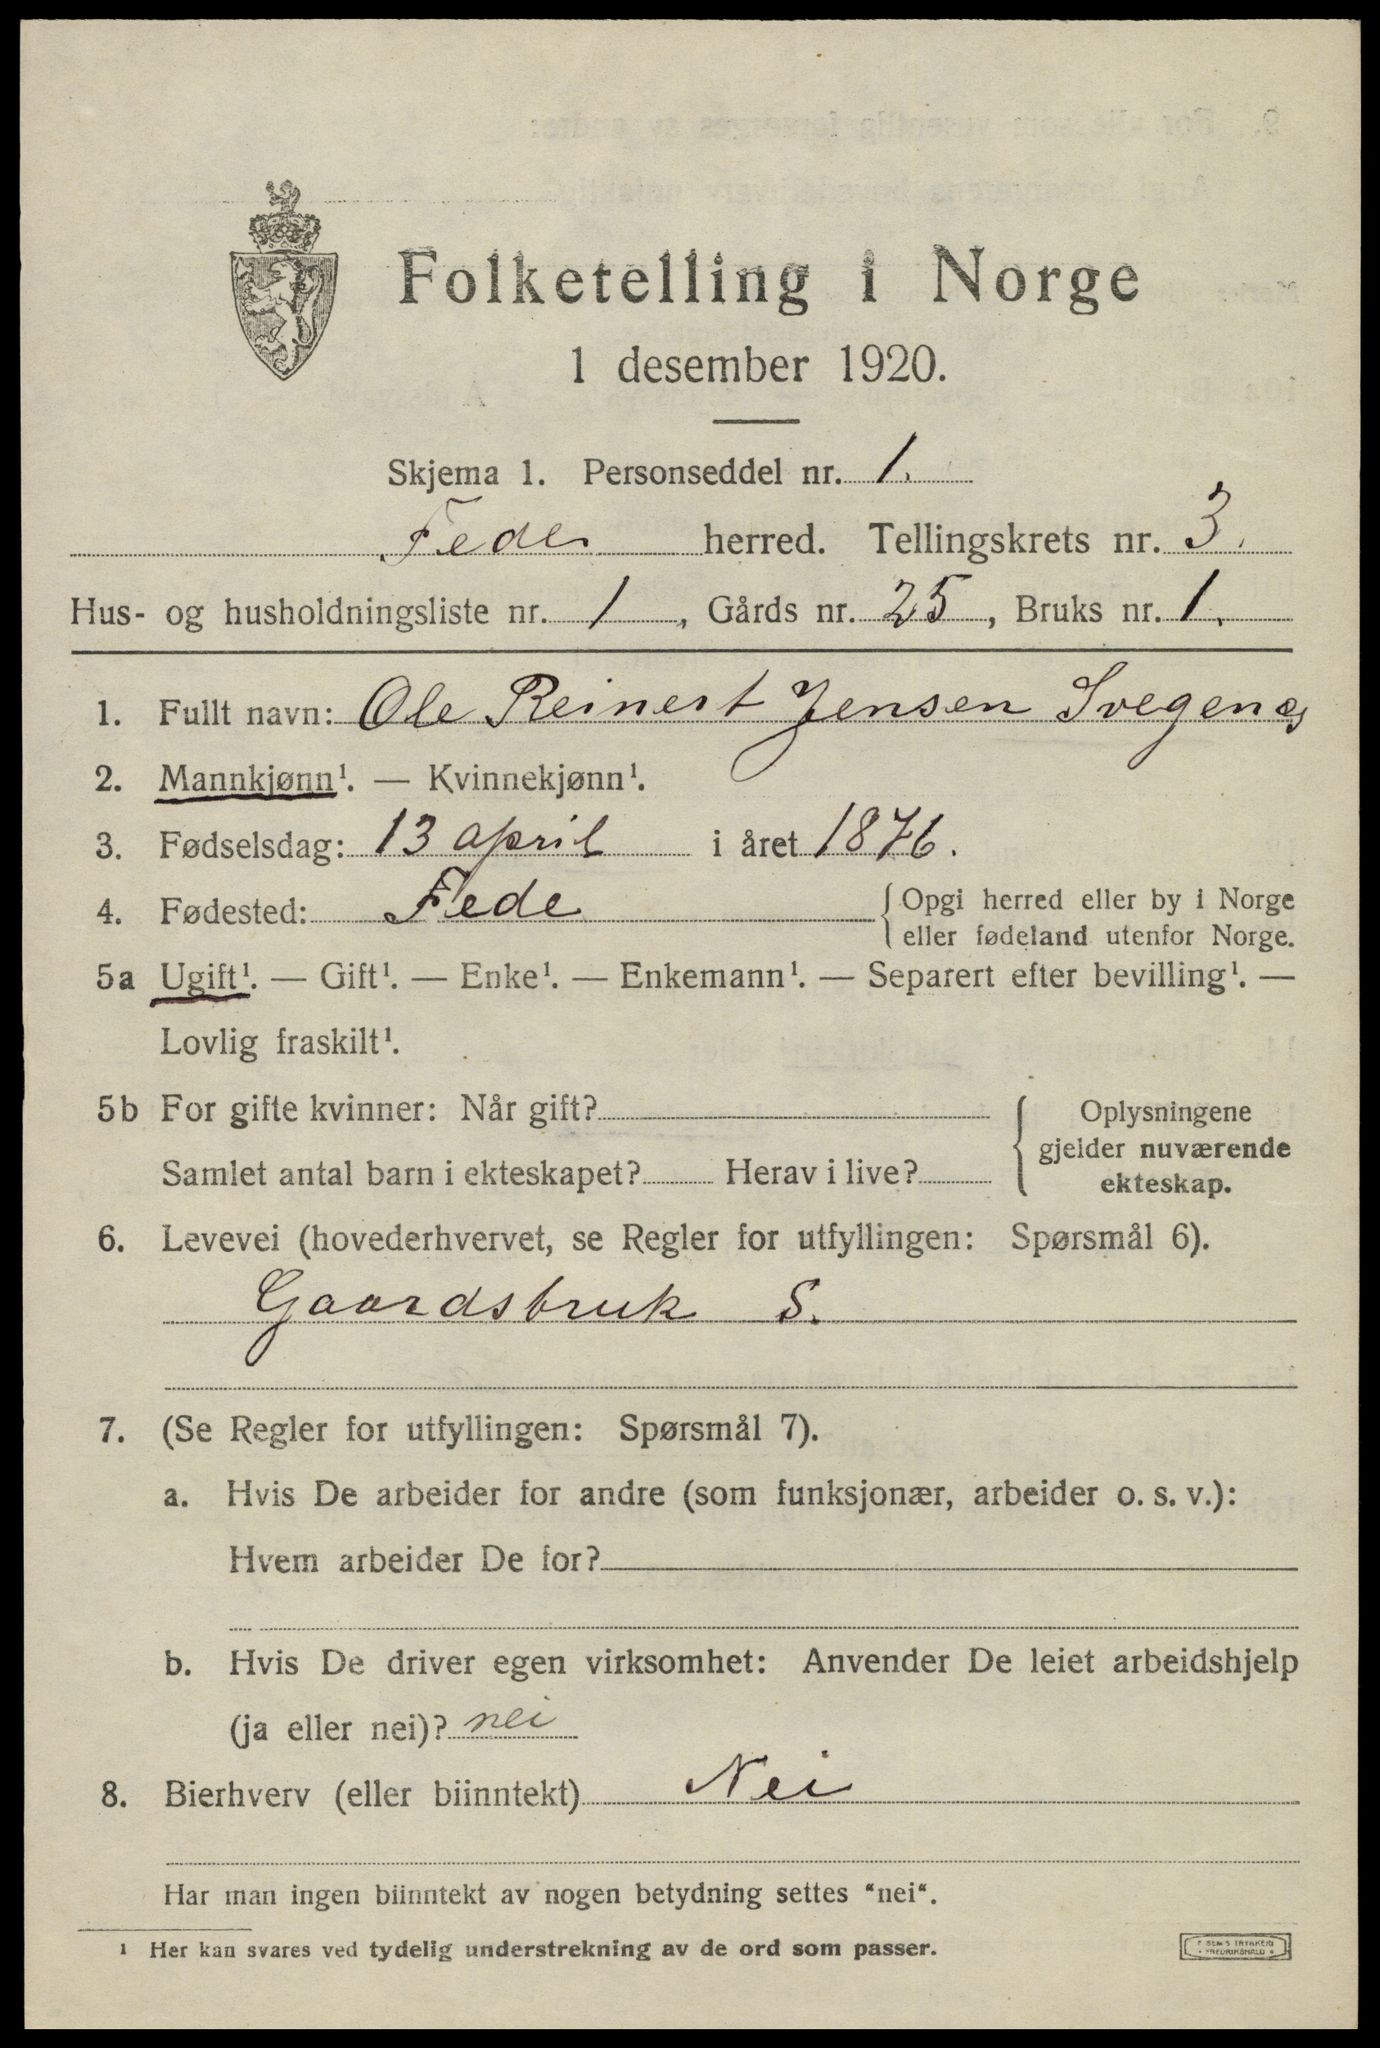 Folketelling i Norge
1 desember 1920.
Skjema 1. Personseddel nr. 1.
Fede herred. Tellingskrets nr. 3.
Hus- og husholdningsliste nr. 1, Gårds nr. 25, Bruks nr. 1.
1. Fullt navn: Ole Reinert Jensen Svegenes
2. Mannkjønn¹. — Kvinnekjønn¹.
3. Fødselsdag: 13 april i året 1876.
4. Fødested: Fede { Opgi herred eller by i Norge
eller fødeland utenfor Norge.
5a Ugift¹. — Gift¹. — Enke¹. — Enkemann¹. — Separert efter bevilling¹. —
Lovlig fraskilt¹.
5b For gifte kvinner: Når gift? { Oplysningene
gjelder nuværende
Samlet antal barn i ekteskapet? Herav i live? ekteskap.
6. Levevei (hovederhvervet, se Regler for utfyllingen: Spørsmål 6).
Gaardsbruk S.
7. (Se Regler for utfyllingen: Spørsmål 7).
a. Hvis De arbeider for andre (som funksjonær, arbeider o. s. v.):
Hvem arbeider De for?
b. Hvis De driver egen virksomhet: Anvender De leiet arbeidshjelp
(ja eller nei)? nei
8. Bierhverv (eller biinntekt) Nei
Har man ingen biinntekt av nogen betydning settes "nei".
¹ Her kan svares ved tydelig understrekning av de ord som passer.
SEM'S TRYKKERI
FREDRIKSHALD